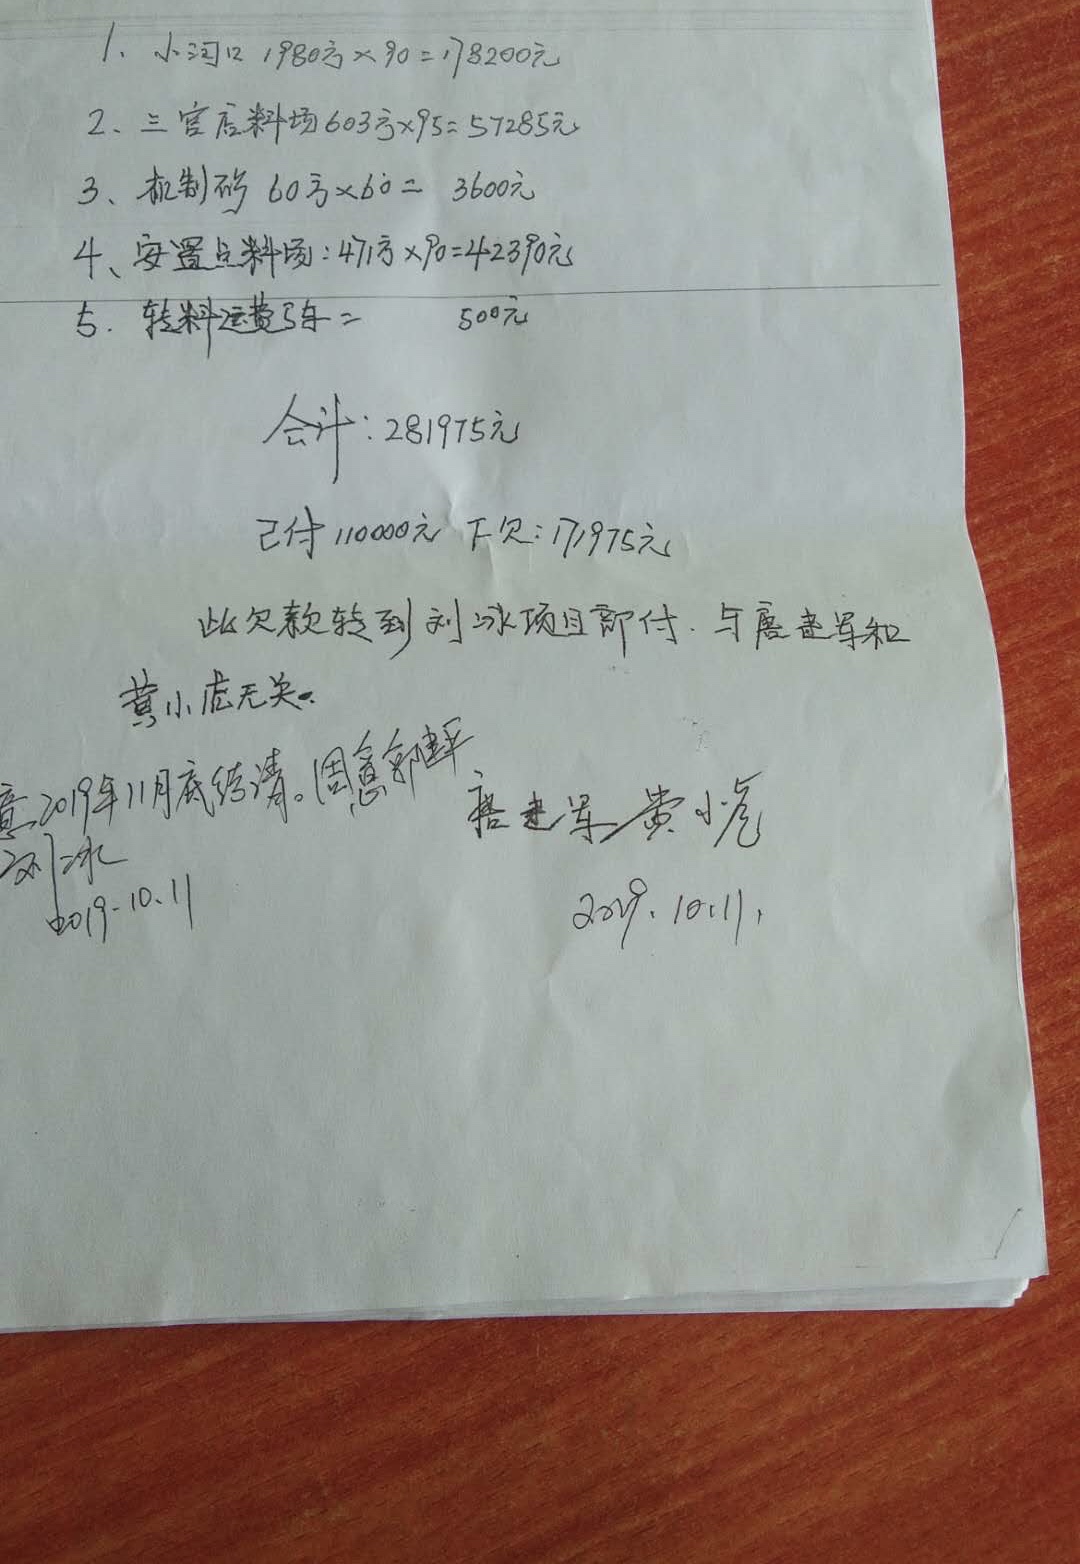 1、小河口 1980方×90=178200元
2、三官店料场603方×95=57285元
3、机制砂 60方×60= 3600元
4、安置点料场:471方×90=42390元
5. 转料运费5车= 500元
合计:281975元
已付110000元 下欠:171975元
此欠款转到刘冰项目部付.与唐建军和
黄小虎无关。
意2019年11月底结清。周意 郭建平
唐建军 黄小虎
刘冰
2019.10.11
2019.10.11.